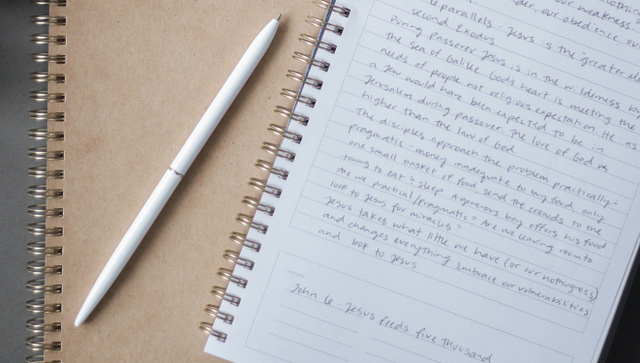 our weakness
parallels. Jesus is the "greater
our obedience
second Exodus
During passover Jesus is in the wilderness
the sea of Galilee. God's heart is meeting the
needs of people not religious expectation. He as
a Jew would have been expected to be in
Jerusalem during passover. The love of God is
higher than the law of God
The disciples approach the problem practically:
pragmatic - money inadequate to buy food, only
one small basket of food, send the crowds to the
towns to eat & sleep. A generous boy offers his food
Are we practical/pragmatic? Are we leaving room to
look to Jesus for miracles?
Jesus takes what little we have (or our nothingness)
and changes everything. Embrace our vulnerabilities
and look to Jesus
John 6 - Jesus feeds five thousand